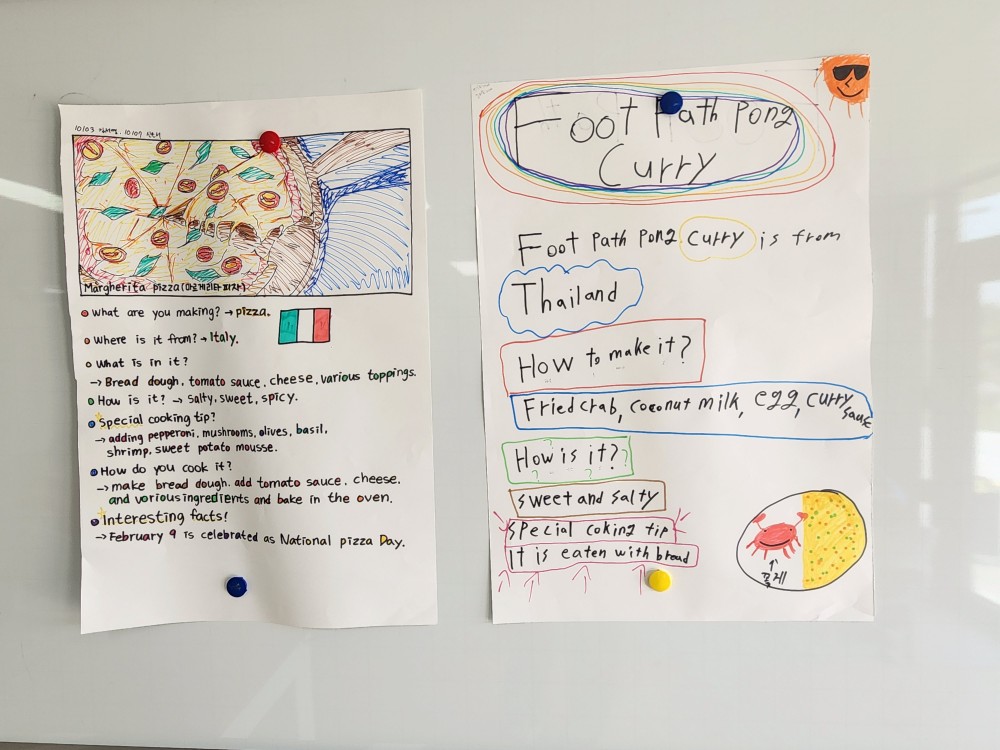 Margherita pizza (마르게리타 피자)
What are you making? → pizza.
Where is it from? → Italy.
What is in it?
→ Bread dough, tomato sauce, cheese, various toppings.
How is it? → salty, sweet, spicy.
Special cooking tip?
→ adding pepperoni, mushrooms, olives, basil,
shrimp, sweet potato mousse.
How do you cook it?
→ make bread dough, add tomato sauce, cheese,
and various ingredients and bake in the oven.
Interesting facts!
→ February 9 is celebrated as National pizza Day.
Foot Path Pong
Curry
Foot Path Pong Curry is from
Thailand
How to make it?
Fried crab, coconut milk, egg, curry
sause
How is it??
sweet and salty
special coking tip
It is eaten with bread
↑
꽃게